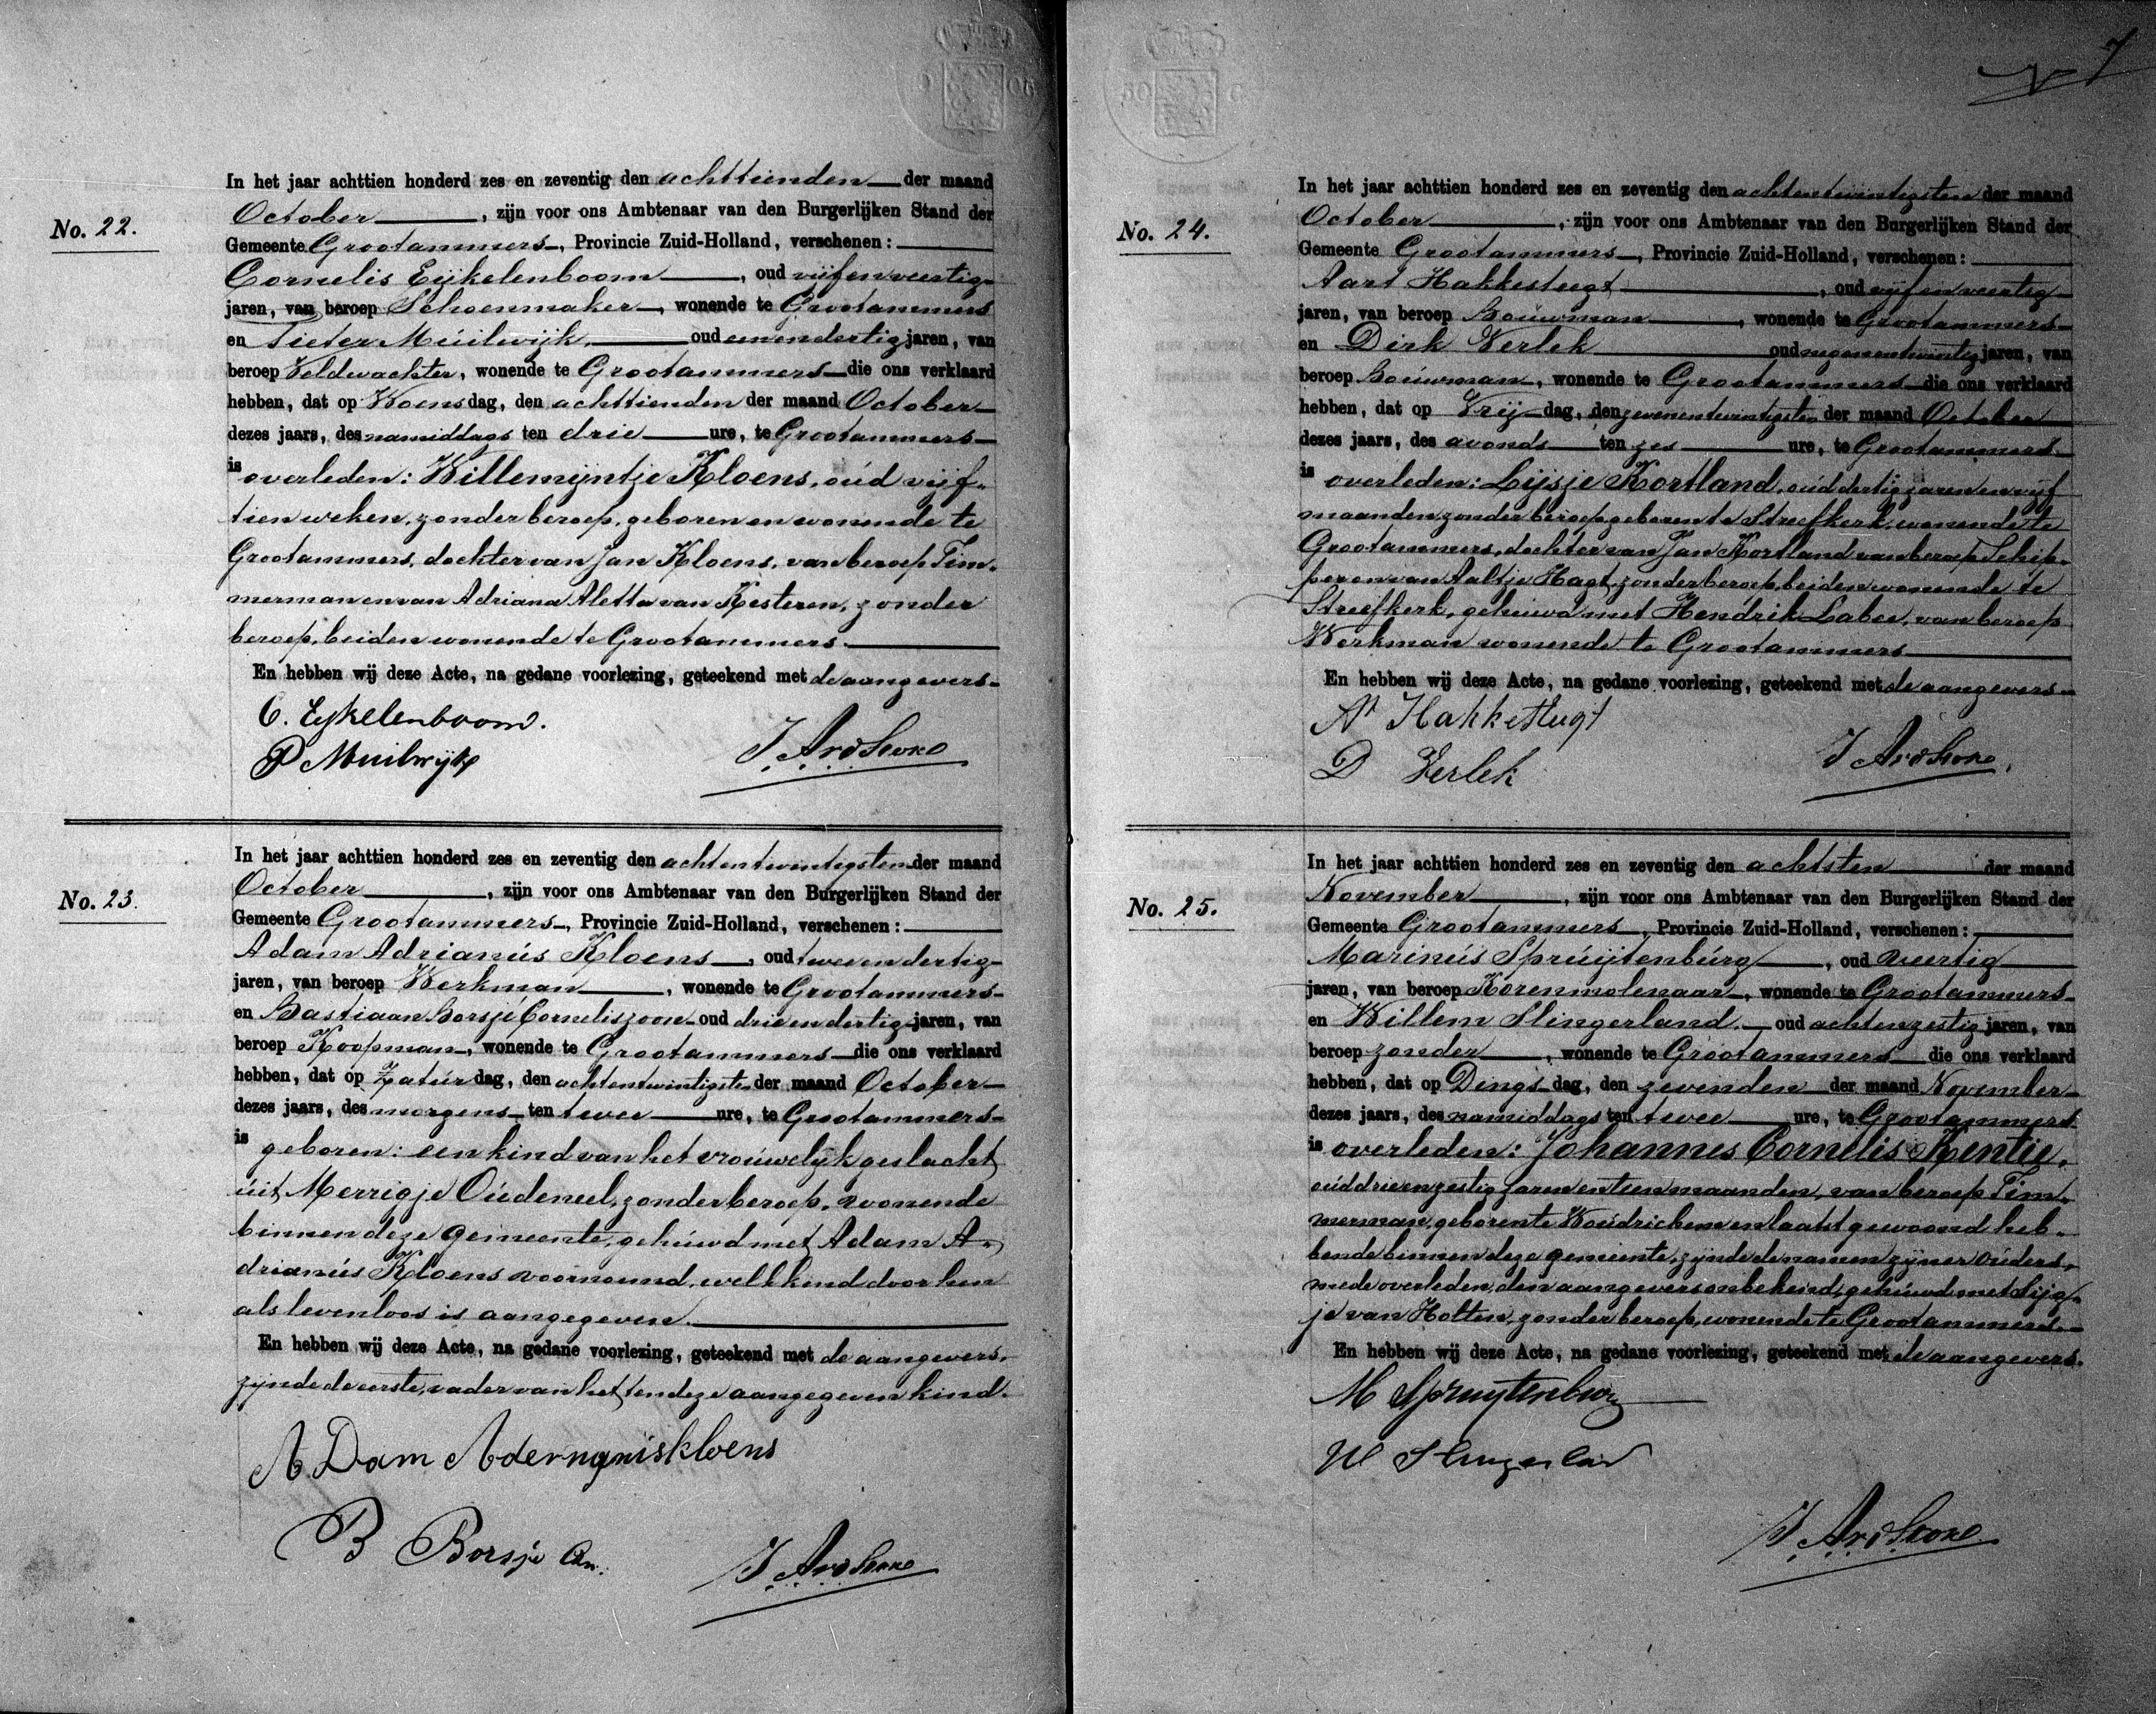 7
No. 22.
In het jaar achttien honderd zes en zeventig den achttienden der maand
October, zijn voor ons Ambtenaar van den Burgerlijken Stand der
Gemeente Grootammers, Provincie Zuid-Holland, verschenen:
Cornelis Eijkelenboom, oud vijfenveertig
jaren, van beroep Schoenmaker, wonende te Grootammers
en Pieter Muilwijk, oud eenendertig jaren, van
beroep Veldwachter, wonende te Grootammers die ons verklaard
hebben, dat op Woensdag, den achttienden der maand October
dezes jaars, des namiddags ten drie ure, te Grootammers
is overleden: Willemijntje Kloens, oud vijf-
tien weken, zonder beroep, geboren en wonende te
Grootammers, dochter van Jan Kloens, van beroep Tim-
merman en van Adriana Aletta van Kesteren, zonder
beroep, beiden wonende te Grootammers.
En hebben wij deze Acte, na gedane voorlezing, geteekend met de aangevers.
C. Eykelenboom.
P Muilwijk
No. 23.
In het jaar achttien honderd zes en zeventig den achtentwintigsten der maand
October, zijn voor ons Ambtenaar van den Burgerlijken Stand der
Gemeente Grootammers, Provincie Zuid-Holland, verschenen:
Adam Adrianus Kloens, oud tweeendertig
jaren, van beroep Werkman, wonende te Grootammers
en Bastiaan Borsje Corneliszoon oud drieendertig jaren, van
beroep Koopman, wonende te Grootammers die ons verklaard
hebben, dat op Zaturdag, den achtentwintigsten der maand October
dezes jaars, des morgens ten twee ure, te Grootammers
is geboren: een kind van het vrouwelijk geslacht
uit Merrigje Oudeneel, zonder beroep, wonende
binnen deze gemeente, gehuwd met Adam A-
drianus Kloens voornoemd, welk kind door hen
als levenloos is aangegeven.
En hebben wij deze Acte, na gedane voorlezing, geteekend met de aangevers,
zijnde de eerste, vader van het ten deze aangegeven kind.
A Dam
B Borsje Czn.
No. 24.
In het jaar achttien honderd zes en zeventig den achtentwintigsten der maand
October, zijn voor ons Ambtenaar van den Burgerlijken Stand der
Gemeente Grootammers, Provincie Zuid-Holland, verschenen:
Aart Hakkesteegt, oud vijfenveertig
jaren, van beroep Bouwman, wonende te Grootammers
en Dirk Verlek oud negenentwintig jaren, van
beroep Bouwman, wonende te Grootammers die ons verklaard
hebben, dat op Vrijdag, den zevenentwintigsten der maand October
dezes jaars, des avonds ten zes ure, te Grootammers
is overleden: Lijsje Kortland, oud dertig jaren en vijf
maanden, zonder beroep, geboren te Streefkerk, wonende te
Grootammers, dochter van Jan Kortland van beroep Schip-
per en van Aaltje Hagt, zonder beroep, beiden wonende te
Streefkerk, gehuwd met Hendrik Labee, van beroep
Werkman wonende te Grootammers
En hebben wij deze Acte, na gedane voorlezing, geteekend met de aangevers
D Verlek
No. 25.
In het jaar achttien honderd zes en zeventig den achtsten der maand
November, zijn voor ons Ambtenaar van den Burgerlijken Stand der
Gemeente Grootammers, Provincie Zuid-Holland, verschenen:
Marinus Spruijtenburg, oud veertig
jaren, van beroep Korenmolenaar, wonende te Grootammers
en Willem Slingerland, oud achtenzestig jaren, van
beroep zonder, wonende te Grootammers die ons verklaard
hebben, dat op Dingsdag, den zevenden der maand November
dezes jaars, des namiddags ten twee ure, te Grootammers
is overleden: Johannes Cornelis Kentie,
oud drieenzestig jaren en tien maanden, van beroep Tim-
merman, geboren te Woudrichem en laatst gewoond heb-
bende binnen deze gemeente, zijnde de namen zijner ouders,
mede overleden, den aangevers onbekend, gehuwd met Sijg-
je van Holten, zonder beroep, wonende te Grootammers.
En hebben wij deze Acte, na gedane voorlezing, geteekend met de aangevers.
M Spruytenburg